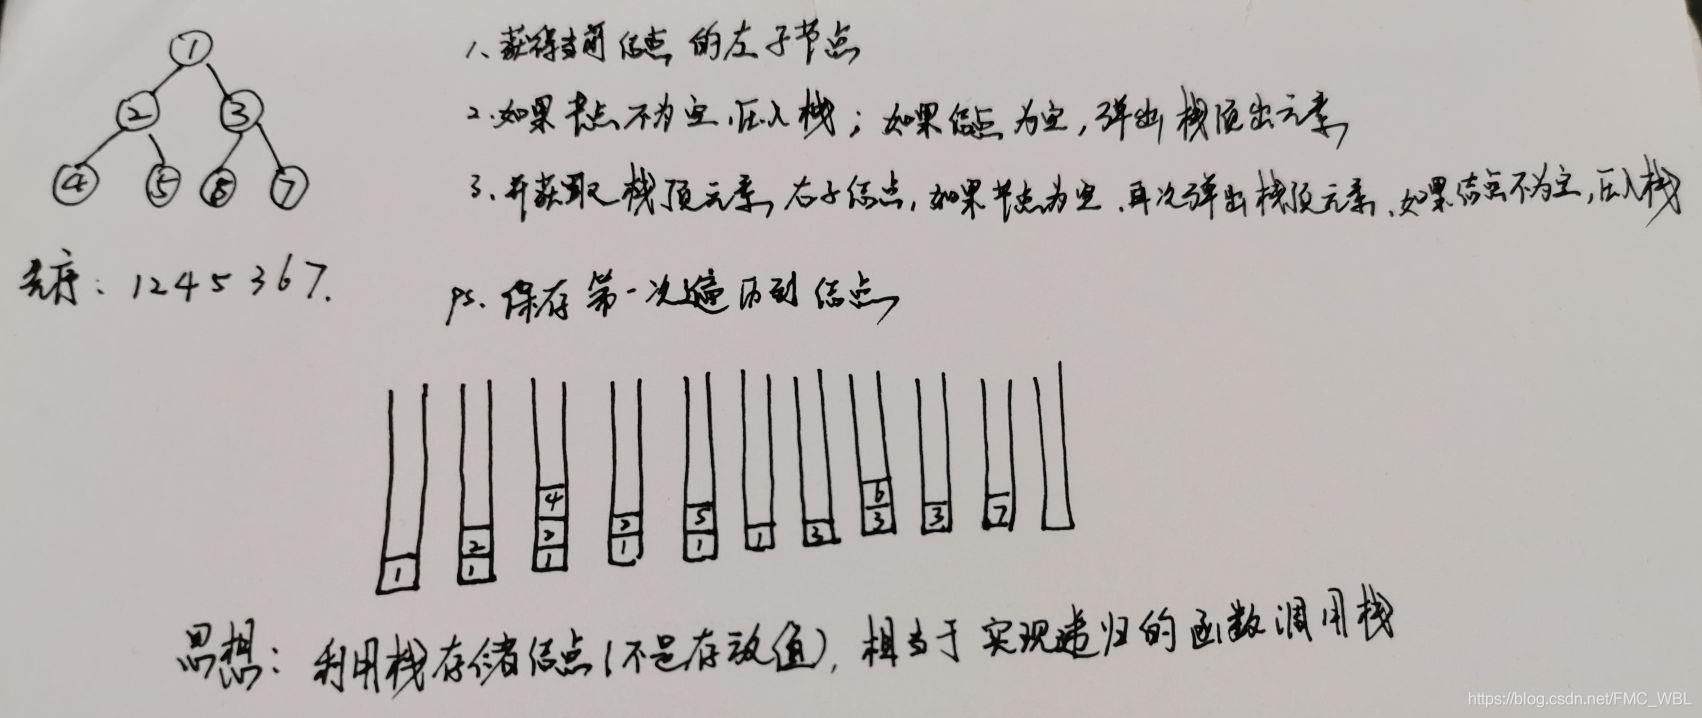 1
2 3
4 5 6 7
先序：1245367.
1、获得当前结点的左子节点
2.如果节点不为空，压入栈；如果结点为空，弹出栈顶出元素
3.并获取栈顶元素右子结点，如果节点为空，再次弹出栈顶元素，如果结点不为空，压入栈
ps. 保存第一次遍历到结点
4 6
2 2 2 5 3 3 7
1 1 1 1 1 1 3
思想：利用栈存储结点(不是存放值)，相当于实现递归的函数调用栈
https://blog.csdn.net/FMC_WBL